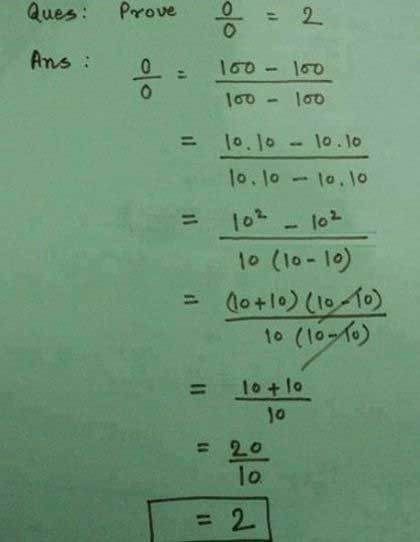 Ques: Prove 0/0 = 2
Ans: 0/0 = (100 - 100)/(100 - 100)
= (10.10 - 10.10)/(10.10 - 10.10)
= (10² - 10²)/(10 (10 - 10))
= ((10+10) (10-10))/(10 (10-10))
= (10 + 10)/10
= 20/10
= 2